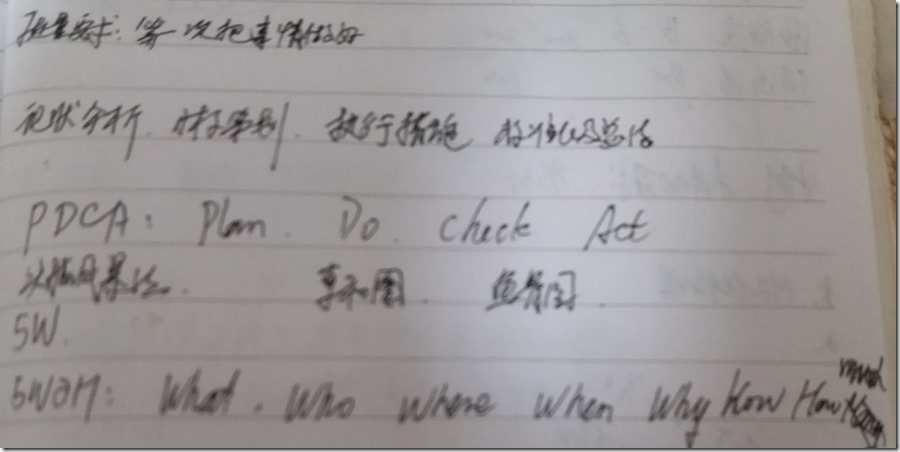 质量要求：第一次把事情做好
现状分析. 执行措施 标准化及总结
PDCA: Plan. Do. Check Act
头脑风暴法. 亲和图. 鱼骨图.
5W.
5W2H: What. Who Where When Why How How much